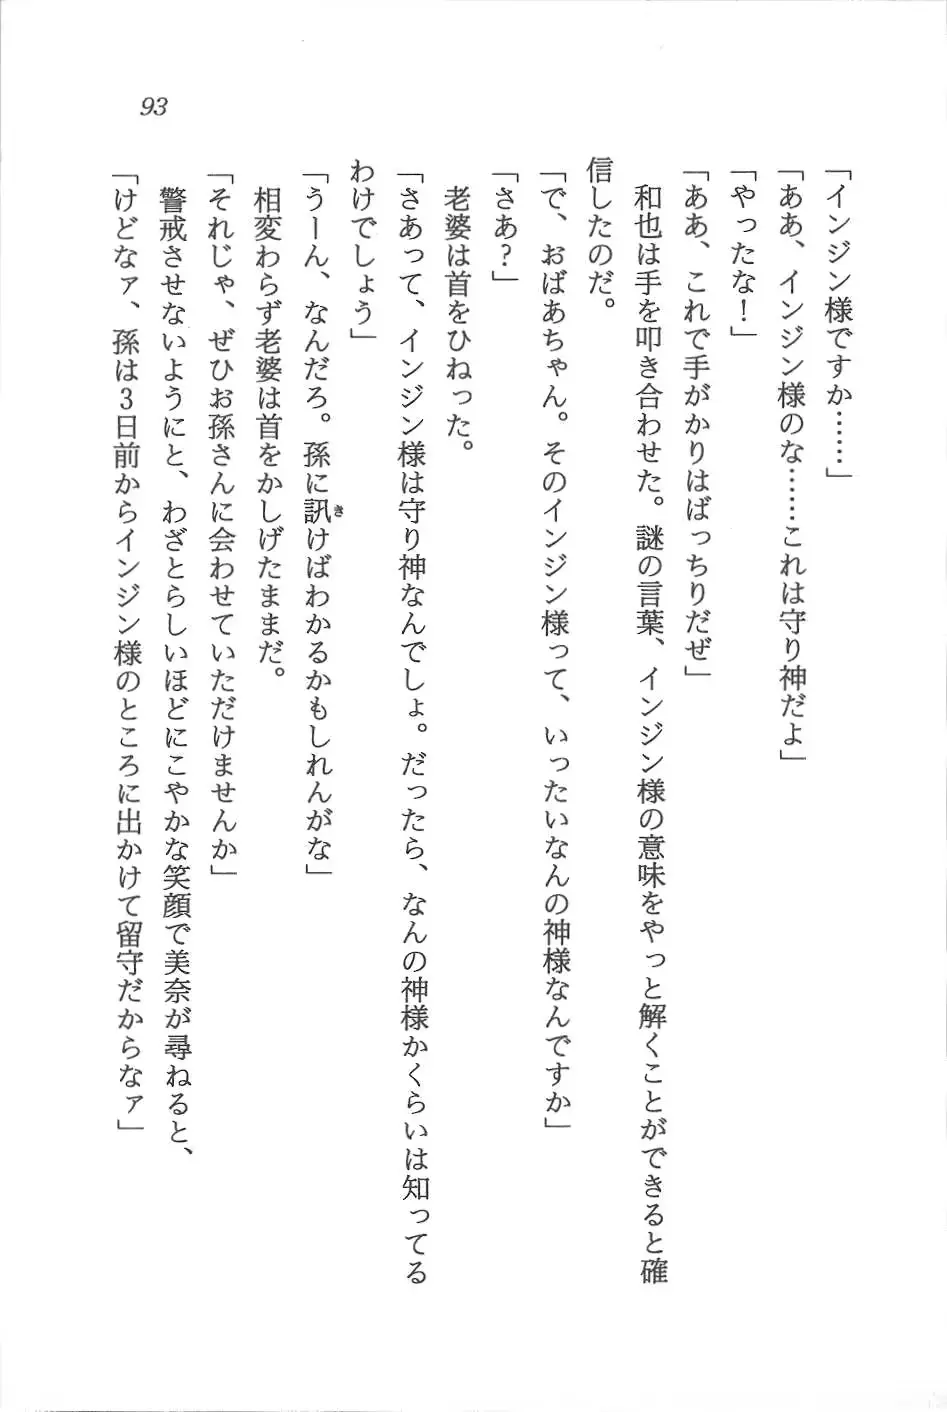 「インジン様ですか……」
「ああ、インジン様のな……これは守り神だよ」
「やったな！」
「ああ、これで手がかりはばっちりだぜ」
　和也は手を叩き合わせた。謎の言葉、インジン様の意味をやっと解くことができると確
信したのだ。
「で、おばあちゃん。そのインジン様って、いったいなんの神様なんですか」
「さあ？」
　老婆は首をひねった。
「さあって、インジン様は守り神なんでしょ。だったら、なんの神様かくらいは知ってる
わけでしょう」
「うーん、なんだろ。孫に訊けばわかるかもしれんがな」
き
　相変わらず老婆は首をかしげたままだ。
「それじゃ、ぜひお孫さんに会わせていただけませんか」
　警戒させないようにと、わざとらしいほどにこやかな笑顔で美奈が尋ねると、
「けどなァ、孫は3日前からインジン様のところに出かけて留守だからなァ」
93